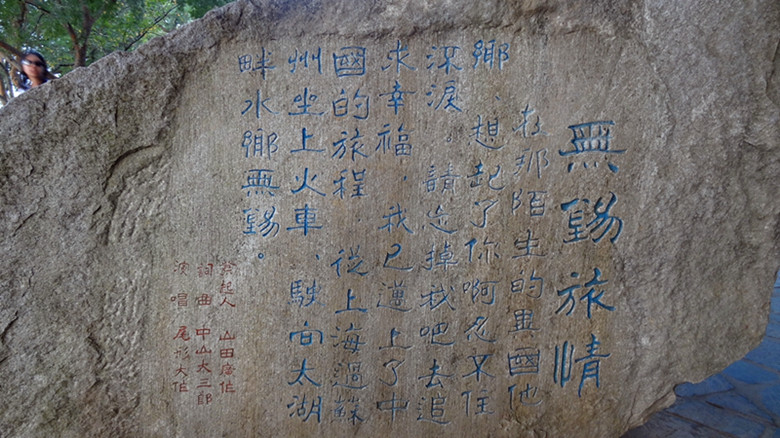 無錫旅情
在那陌生的異國他
鄉、想起了你啊忍不住
深淚。請忘掉我吧去追
求幸福，我已邁上了中
國的旅程，從上海過蘇
州坐上火車、駛向太湖
畔水鄉無錫。
發起人 山田廣作
詞曲 中山大三郎
演唱 尾形大作